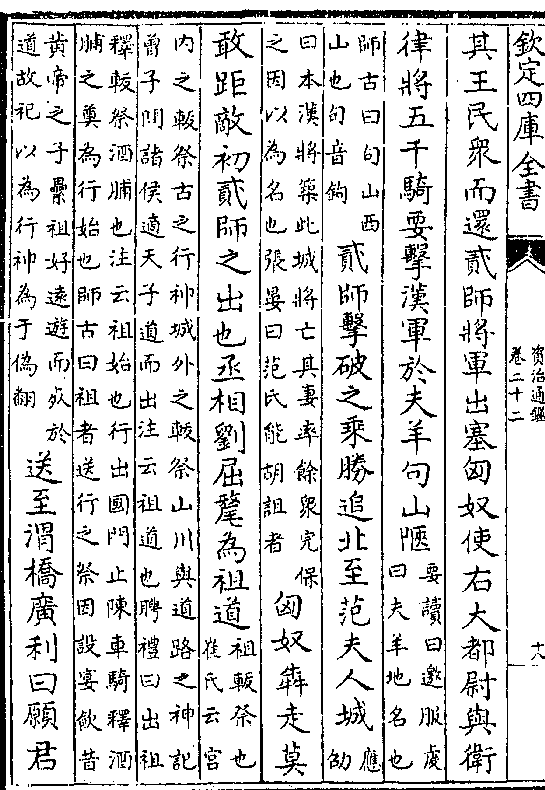 欽定四庫全書
資治通鑑
卷二十二
十八
其王民衆而還貳師將軍出塞匈奴使右大都尉與衛
律將五千騎要擊漢軍於夫羊句山陿
要讀曰邀服虔
曰夫羊地名也
師古曰句山西
山也句音鉤
貳師擊破之乘勝追北至范夫人城
應
劭
曰本漢將築此城將亡其妻率餘衆完保
之因以為名也張晏曰范氏能胡詛者
匈奴犇走莫
敢距敵初貳師之出也丞相劉屈氂為祖道
祖軷祭也
崔氏云宫
内之軷祭古之行神城外之軷祭山川與道路之神記
曾子問諸侯適天子道而出注云祖道也聘禮曰出祖
釋軷祭酒脯也注云祖始也行出國門止陳車騎釋酒
脯之奠為行始也師古曰祖者送行之祭因設宴飲昔
黄帝之子纍祖好遠遊而死於
道故祀以為行神為于偽翻
送至渭橋廣利曰願君